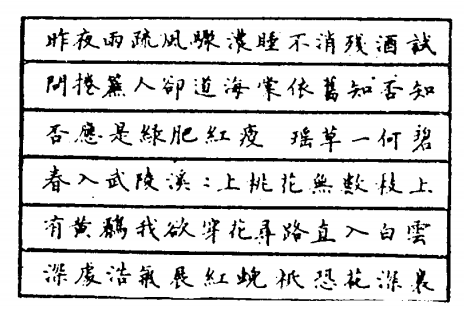 昨夜雨疏風驟濃睡不消残酒試
問捲簾人卻道海棠依舊知否知
否應是綠肥紅瘦 瑶草一何碧
春入武陵溪：上桃花無數枝上
有黃鸝我欲穿花尋路直入白雲
深處浩氣展紅蜺祇恐花深裏